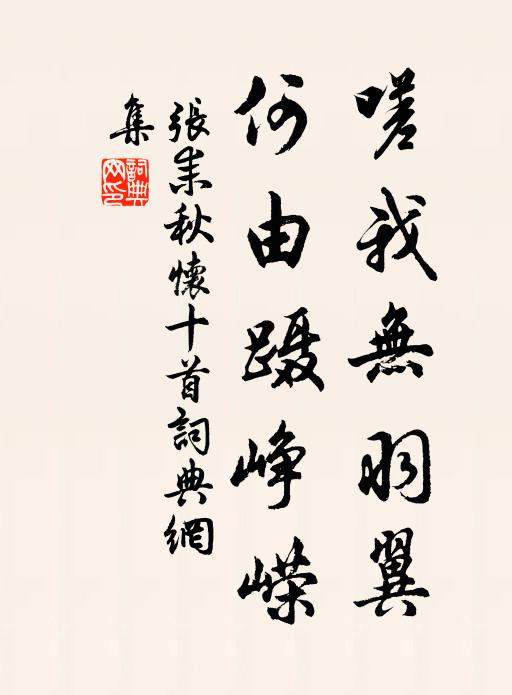 嗟我無羽翼
何由蹑峥嵘
張耒秋懷十首詞典網
集
詞典網印